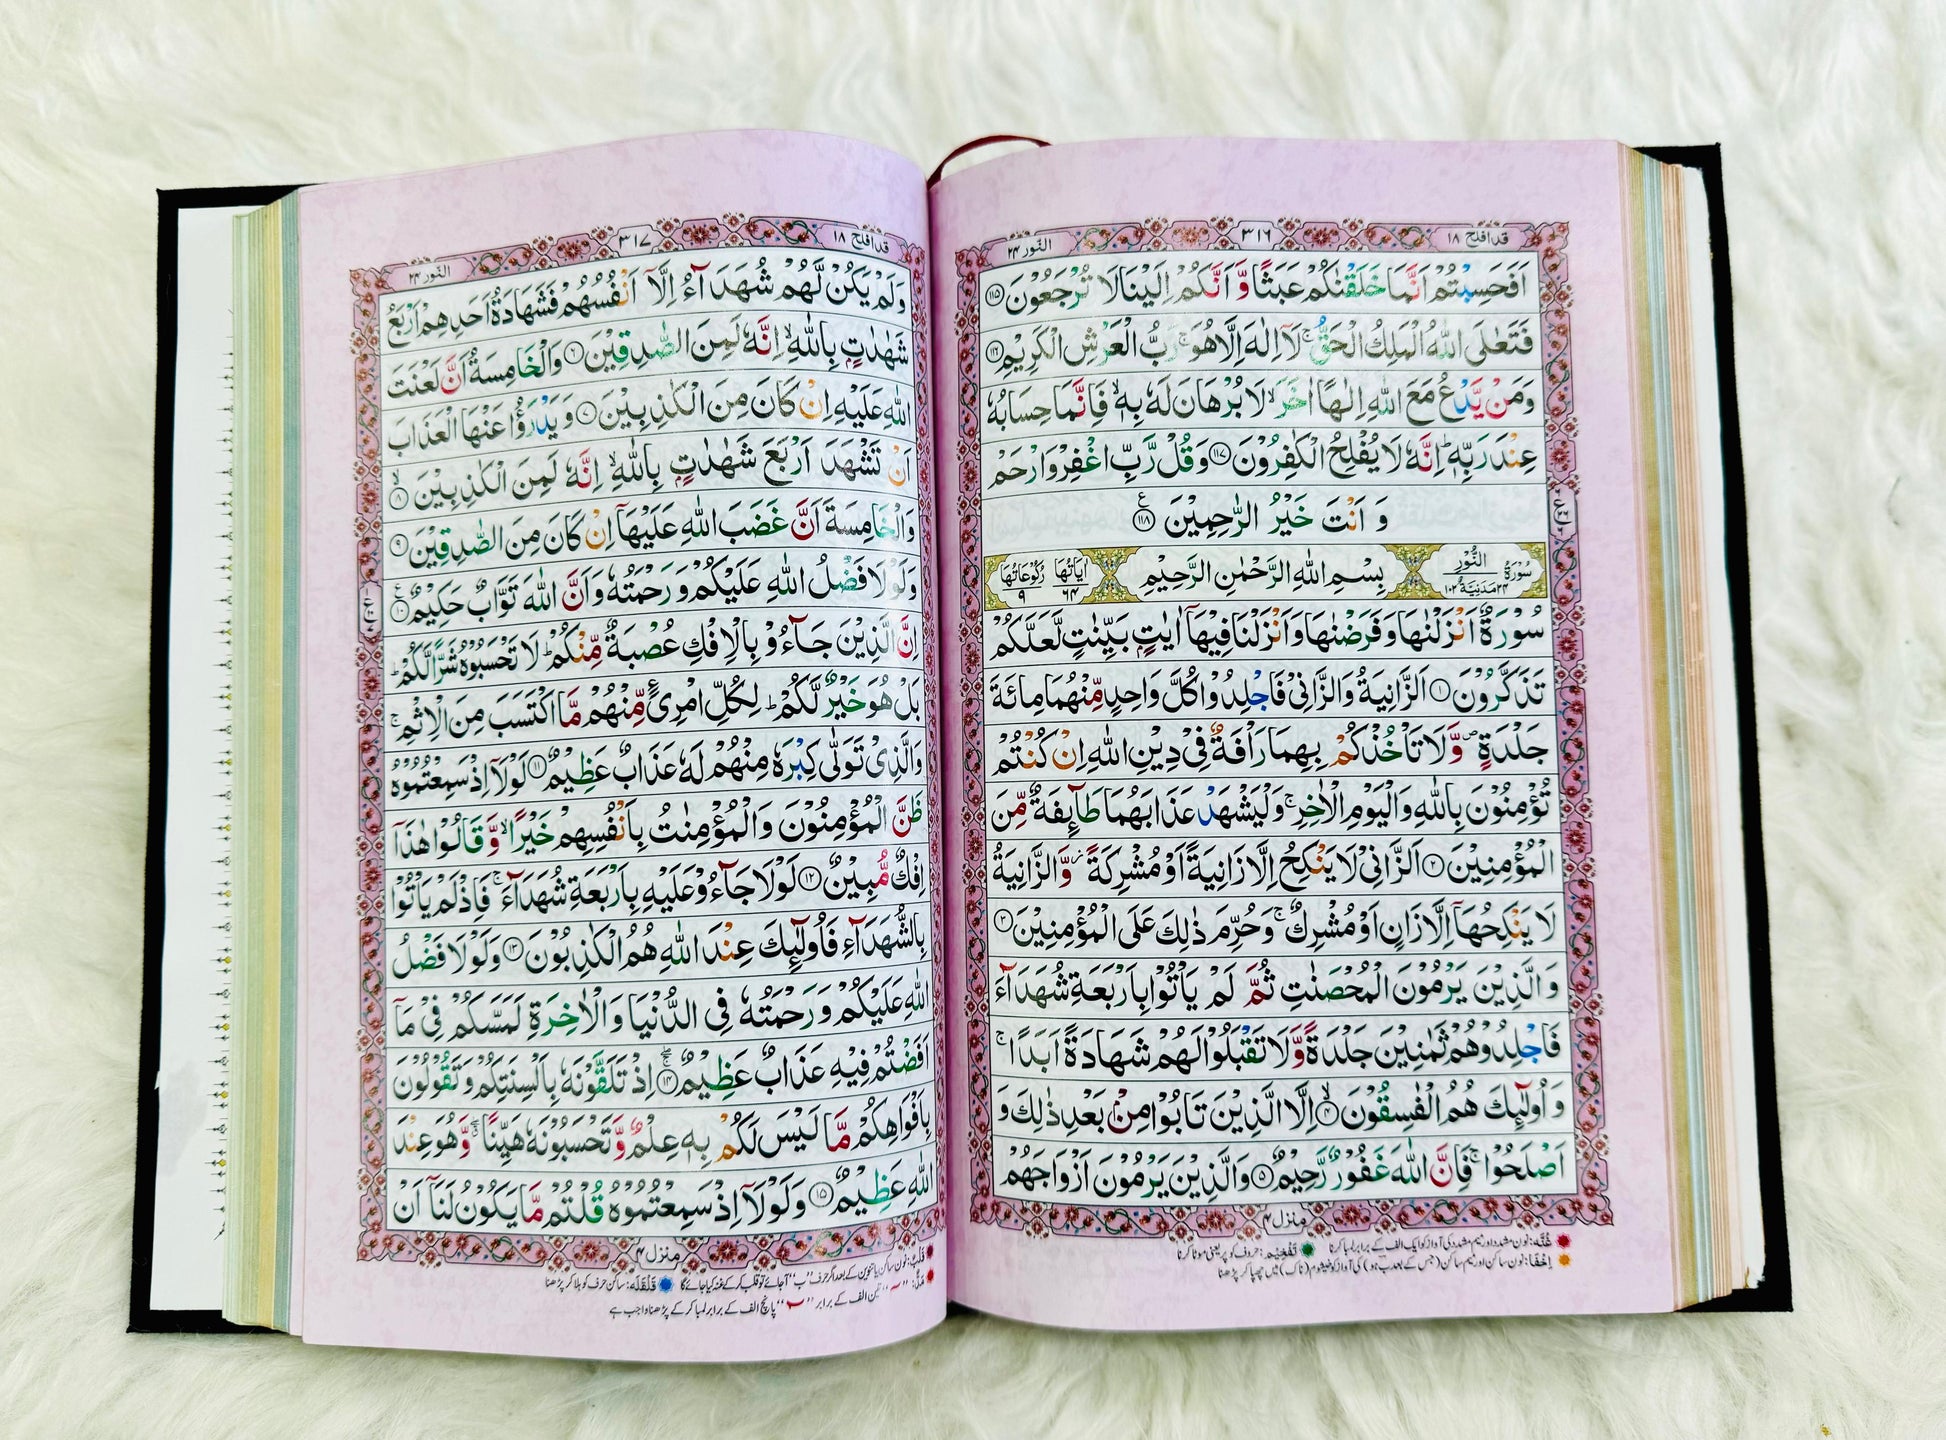 قد افلح ١٨
٣١٦
النّور ٢٤
اَفَحَسِبْتُمْ اَنَّمَا خَلَقْنٰكُمْ عَبَثًا وَّ اَنَّكُمْ اِلَيْنَا لَا تُرْجَعُوْنَ ﴿١١٥﴾
فَتَعٰلَى اللّٰهُ الْمَلِكُ الْحَقُّ ۚ لَاۤ اِلٰهَ اِلَّا هُوَ ۚ رَبُّ الْعَرْشِ الْكَرِيْمِ ﴿١١٦﴾
وَمَنْ يَّدْعُ مَعَ اللّٰهِ اِلٰهًا اٰخَرَ ۙ لَا بُرْهَانَ لَهٗ بِهٖ ۙ فَاِنَّمَا حِسَابُهٗ
عِنْدَ رَبِّهٖ ؕ اِنَّهٗ لَا يُفْلِحُ الْكٰفِرُوْنَ ﴿١١٧﴾ وَقُلْ رَّبِّ اغْفِرْ وَارْحَمْ
وَ اَنْتَ خَيْرُ الرّٰحِمِيْنَ ﴿١١٨﴾
سُوْرَةُ النُّوْرِ ٢٤ مَدَنِيَّةٌ ١٠٢ بِسْمِ اللّٰهِ الرَّحْمٰنِ الرَّحِيْمِ اٰيَاتُهَا ٦٤ رُكُوْعَاتُهَا ٩
سُوْرَةٌ اَنْزَلْنٰهَا وَفَرَضْنٰهَا وَاَنْزَلْنَا فِيْهَاۤ اٰيٰتٍۭ بَيِّنٰتٍ لَّعَلَّكُمْ
تَذَكَّرُوْنَ ﴿١﴾ اَلزَّانِيَةُ وَالزَّانِيْ فَاجْلِدُوْا كُلَّ وَاحِدٍ مِّنْهُمَا مِائَةَ
جَلْدَةٍ ۪ وَّلَا تَاْخُذْكُمْ بِهِمَا رَاْفَةٌ فِيْ دِيْنِ اللّٰهِ اِنْ كُنْتُمْ
تُؤْمِنُوْنَ بِاللّٰهِ وَالْيَوْمِ الْاٰخِرِ ۚ وَلْيَشْهَدْ عَذَابَهُمَا طَآىِٕفَةٌ مِّنَ
الْمُؤْمِنِيْنَ ﴿٢﴾ اَلزَّانِيْ لَا يَنْكِحُ اِلَّا زَانِيَةً اَوْ مُشْرِكَةً ؗ وَّالزَّانِيَةُ
لَا يَنْكِحُهَاۤ اِلَّا زَانٍ اَوْ مُشْرِكٌ ۚ وَحُرِّمَ ذٰلِكَ عَلَى الْمُؤْمِنِيْنَ ﴿٣﴾
وَالَّذِيْنَ يَرْمُوْنَ الْمُحْصَنٰتِ ثُمَّ لَمْ يَاْتُوْا بِاَرْبَعَةِ شُهَدَآءَ
فَاجْلِدُوْهُمْ ثَمٰنِيْنَ جَلْدَةً وَّلَا تَقْبَلُوْا لَهُمْ شَهَادَةً اَبَدًا ۚ
وَ اُولٰٓىِٕكَ هُمُ الْفٰسِقُوْنَ ﴿٤﴾ اِلَّا الَّذِيْنَ تَابُوْا مِنْۢ بَعْدِ ذٰلِكَ وَ
اَصْلَحُوْا ۚ فَاِنَّ اللّٰهَ غَفُوْرٌ رَّحِيْمٌ ﴿٥﴾ وَالَّذِيْنَ يَرْمُوْنَ اَزْوَاجَهُمْ
منزل ٤
غُنَّه: نون مشدد اور میم مشدد کی آواز کو ایک الف کے برابر لمبا کرنا تَفْخِیْم: حروف کو پر یعنی موٹا کرنا
اِخْفَا: نون ساکن اور میم ساکن (جس کے بعد ب ہو) کی آواز کو خیشوم (ناک) میں چھپا کر پڑھنا
قد افلح ١٨
٣١٧
النّور ٢٤
وَلَمْ يَكُنْ لَّهُمْ شُهَدَآءُ اِلَّاۤ اَنْفُسُهُمْ فَشَهَادَةُ اَحَدِهِمْ اَرْبَعُ
شَهٰدٰتٍۭ بِاللّٰهِ ۙ اِنَّهٗ لَمِنَ الصّٰدِقِيْنَ ﴿٦﴾ وَالْخَامِسَةُ اَنَّ لَعْنَتَ
اللّٰهِ عَلَيْهِ اِنْ كَانَ مِنَ الْكٰذِبِيْنَ ﴿٧﴾ وَ يَدْرَؤُا عَنْهَا الْعَذَابَ
اَنْ تَشْهَدَ اَرْبَعَ شَهٰدٰتٍۭ بِاللّٰهِ ۙ اِنَّهٗ لَمِنَ الْكٰذِبِيْنَ ﴿٨﴾
وَالْخَامِسَةَ اَنَّ غَضَبَ اللّٰهِ عَلَيْهَاۤ اِنْ كَانَ مِنَ الصّٰدِقِيْنَ ﴿٩﴾
وَلَوْلَا فَضْلُ اللّٰهِ عَلَيْكُمْ وَرَحْمَتُهٗ وَاَنَّ اللّٰهَ تَوَّابٌ حَكِيْمٌ ﴿١٠﴾
اِنَّ الَّذِيْنَ جَآءُوْ بِالْاِفْكِ عُصْبَةٌ مِّنْكُمْ ؕ لَا تَحْسَبُوْهُ شَرًّا لَّكُمْ ؕ
بَلْ هُوَ خَيْرٌ لَّكُمْ ؕ لِكُلِّ امْرِئٍ مِّنْهُمْ مَّا اكْتَسَبَ مِنَ الْاِثْمِ ۚ
وَالَّذِيْ تَوَلّٰى كِبْرَهٗ مِنْهُمْ لَهٗ عَذَابٌ عَظِيْمٌ ﴿١١﴾ لَوْلَاۤ اِذْ سَمِعْتُمُوْهُ
ظَنَّ الْمُؤْمِنُوْنَ وَالْمُؤْمِنٰتُ بِاَنْفُسِهِمْ خَيْرًا ۙ وَّقَالُوْا هٰذَاۤ
اِفْكٌ مُّبِيْنٌ ﴿١٢﴾ لَوْلَا جَآءُوْ عَلَيْهِ بِاَرْبَعَةِ شُهَدَآءَ ۚ فَاِذْ لَمْ يَاْتُوْا
بِالشُّهَدَآءِ فَاُولٰٓىِٕكَ عِنْدَ اللّٰهِ هُمُ الْكٰذِبُوْنَ ﴿١٣﴾ وَلَوْلَا فَضْلُ
اللّٰهِ عَلَيْكُمْ وَرَحْمَتُهٗ فِي الدُّنْيَا وَالْاٰخِرَةِ لَمَسَّكُمْ فِيْ مَاۤ
اَفَضْتُمْ فِيْهِ عَذَابٌ عَظِيْمٌ ﴿١٤﴾ اِذْ تَلَقَّوْنَهٗ بِاَلْسِنَتِكُمْ وَتَقُوْلُوْنَ
بِاَفْوَاهِكُمْ مَّا لَيْسَ لَكُمْ بِهٖ عِلْمٌ وَّتَحْسَبُوْنَهٗ هَيِّنًا ۖ وَّهُوَ عِنْدَ
اللّٰهِ عَظِيْمٌ ﴿١٥﴾ وَلَوْلَاۤ اِذْ سَمِعْتُمُوْهُ قُلْتُمْ مَّا يَكُوْنُ لَنَاۤ اَنْ
منزل ٤
قَلْب: نون ساکن یا تنوین کے بعد اگر حرف "ب" آجائے تو قلب کر کے غنہ کیا جائے گا قَلْقَلَه: ساکن حرف کو ہلا کر پڑھنا
مَدّ: "ۤ" تین الف کے برابر "ٓ" پانچ الف کے برابر لمبا کر کے پڑھنا واجب ہے